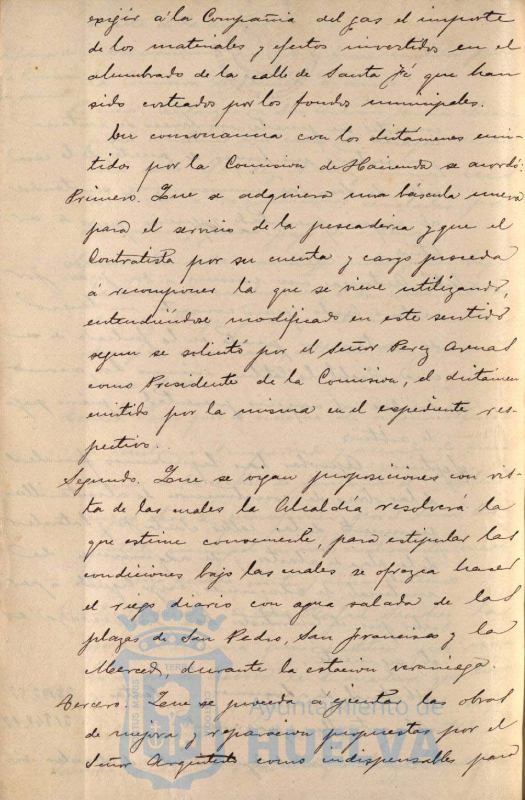 exigir á la Compañia del gas el importe
de los materiales y efectos invertidos en el
alumbrado de la calle de Santa Fé que han
sido costeados por los fondos municipales.
En consonancia con los dictámenes emi-
tidos por la Comision de Hacienda se acordó:
Primero. Que se adquiera una báscula nueva
para el servicio de la pescaderia y que el
Contratista por su cuenta y cargo proceda
á recomponer la que se viene utilizando,
entendiéndose modificado en este sentido
segun se solicitó por el Señor Perez
como Presidente de la Comision, el dictamen
emitido por la misma en el expediente res-
pectivo.
Segundo. Que se oigan proposiciones con vis-
ta de las cuales la Alcaldía resolverá lo
que estime conveniente, para estipular las
condiciones bajo las cuales se ofrezca hacer
el riego diario con agua salada de las
plazas de San Pedro, San Francisco y la
Merced, durante la estacion veraniega.
Tercero. Que se proceda á ejecutar las obras
de mejora y reparacion propuestas por el
Señor Arquitecto como indispensables para
Ayuntamiento de
HUELVA